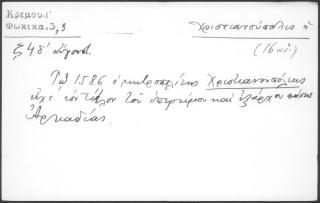 Κρέμου Γ
Φωκικά, 3, 9
Χριστιανούπολις ἡ
(16 αἰ)
Τῷ 1586 ὁ μητροπολίτης Χριστιανουπόλεως
εἶχε τὸν τίτλον τοῦ ὑπερτίμου καὶ ἐξάρχου πάσης
Ἀρκαδίας.